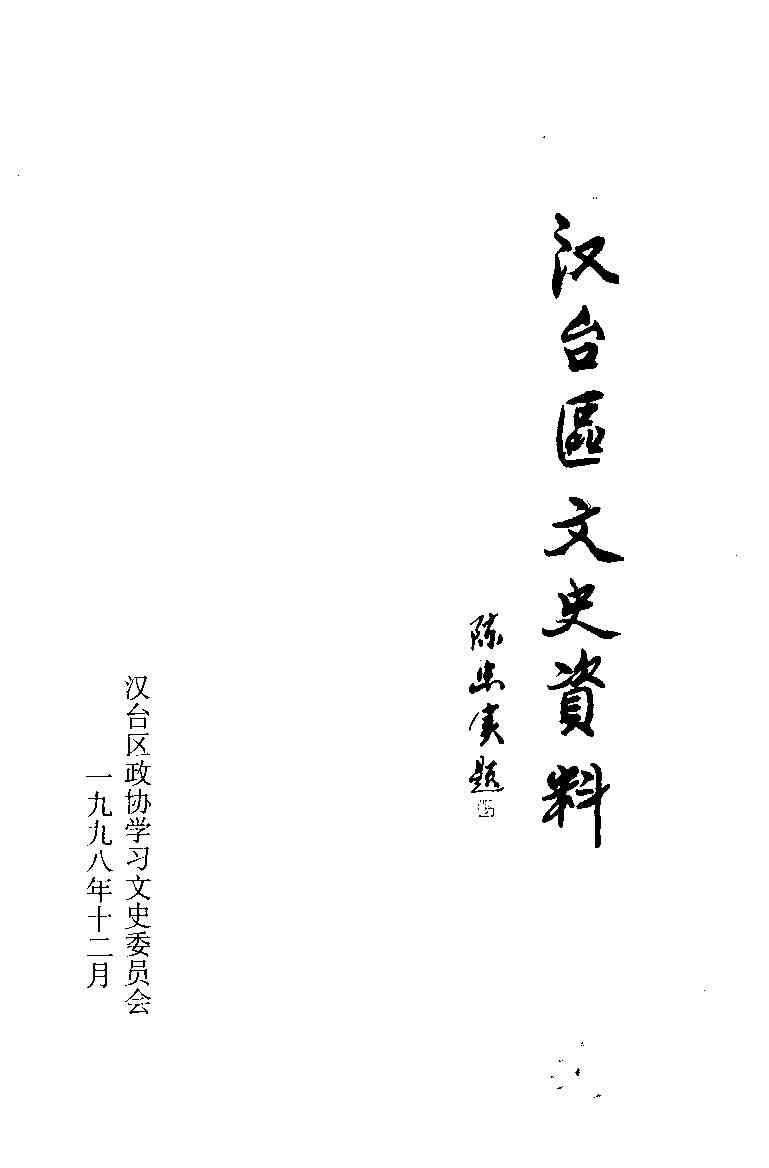 汉台區文史資料
陈忠实题
汉台区政协学习文史委员会
一九九八年十二月